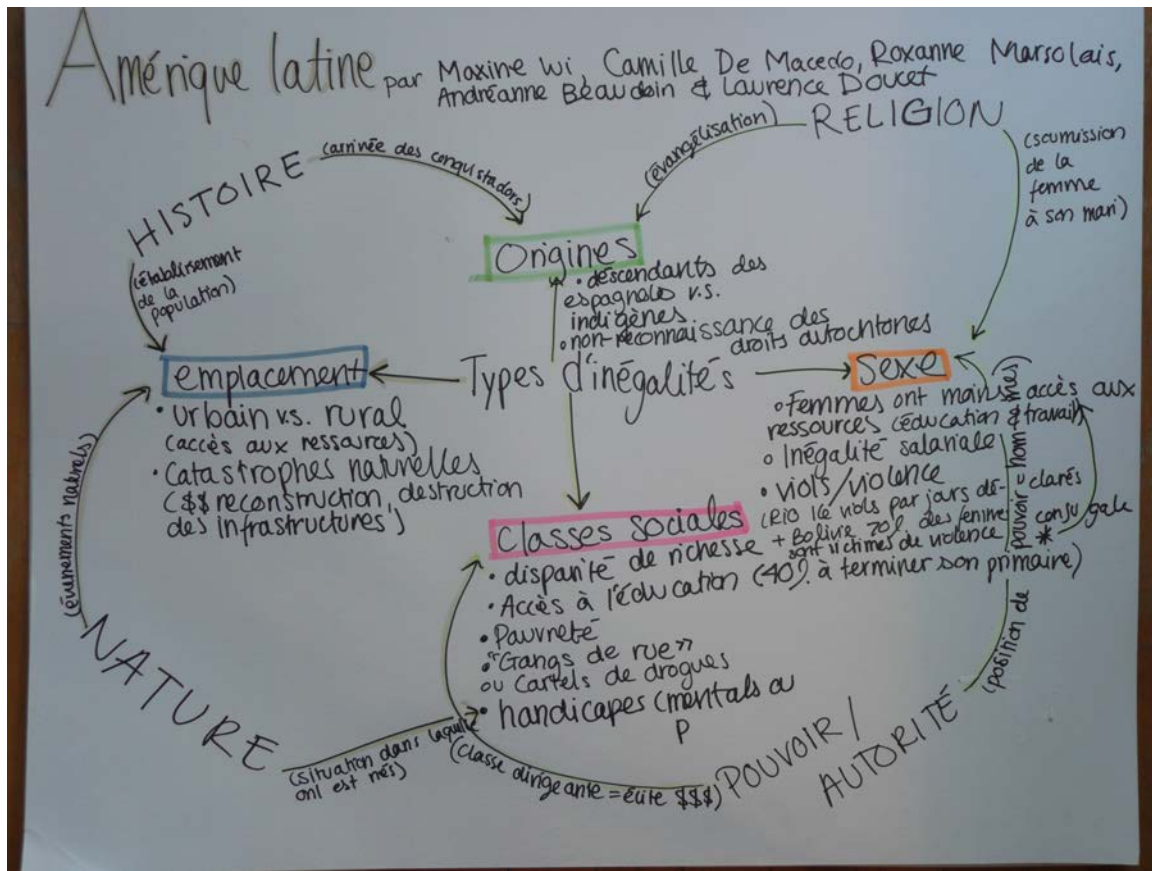 Amérique latine par Maxine Wi, Camille De Macedo, Roxanne Marsolais,
Andréanne Beaudoin & Laurence Doucet
RELIGION
(évangélisation)
(soumission
de la
femme
à son mari)
HISTOIRE
(arrivée des conquistadors)
(établissement
de la
population)
Origines
• descendants des
espagnols v.s.
indigènes
• non-reconnaissance des
droits autochtones
Types d'inégalités
emplacement
• Urbain v.s. rural
(accès aux ressources)
• Catastrophes naturelles
($$ reconstruction, destruction
des infrastructures)
Sexe
• Femmes ont moins accès aux
ressources (éducation & travail)
• Inégalité salariale
• viols/violence
(RIO 16 viols par jours dé-
clarés
+ Bolivie 70% des femme
sont victimes de violence
conjugale
*
Classes sociales
• disparité de richesse
• Accès à l'éducation (40% à terminer son primaire)
• Pauvreté
• "Gangs de rue"
ou Cartels de drogues
• handicapes (mentals ou
P
NATURE
(évènements naturels)
(situation dans laquelle
on est nés)
POUVOIR /
AUTORITÉ
(classe dirigeante = élite $$$)
(position de pouvoir = hommes)